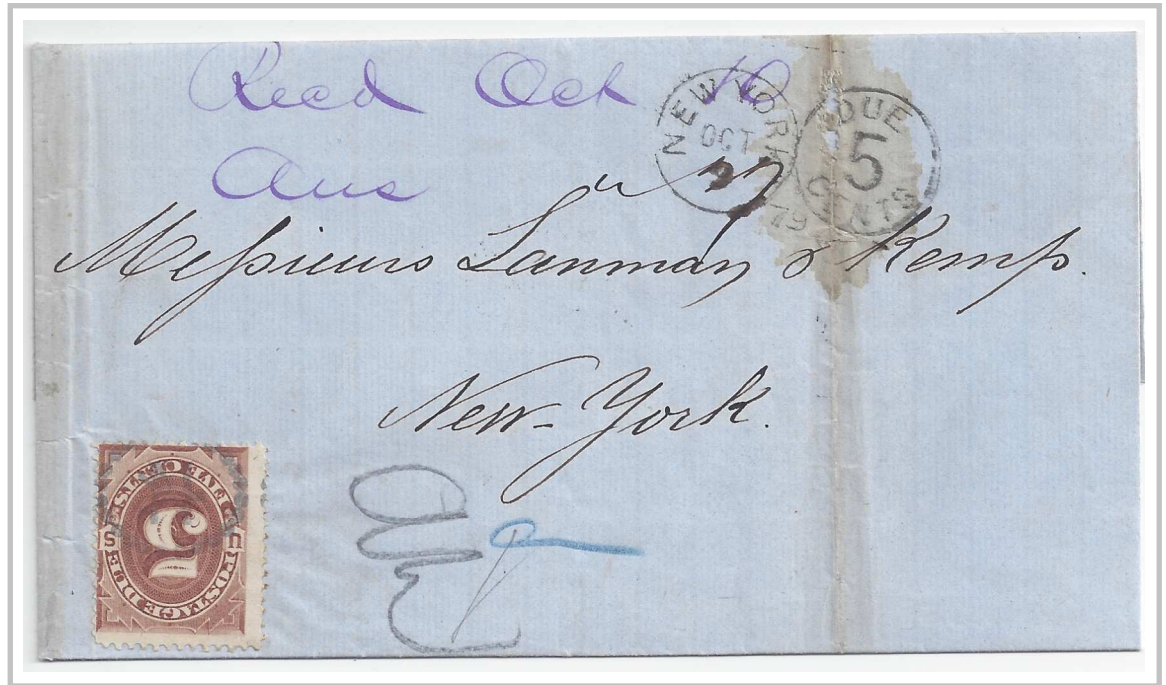 Recd Oct 10
Ans
NEW YORK
OCT
9
79
DUE
5
CENTS
Messieurs Lanman & Kemp.
New-York.
POSTAGE DUE
U S
5
FIVE CENTS